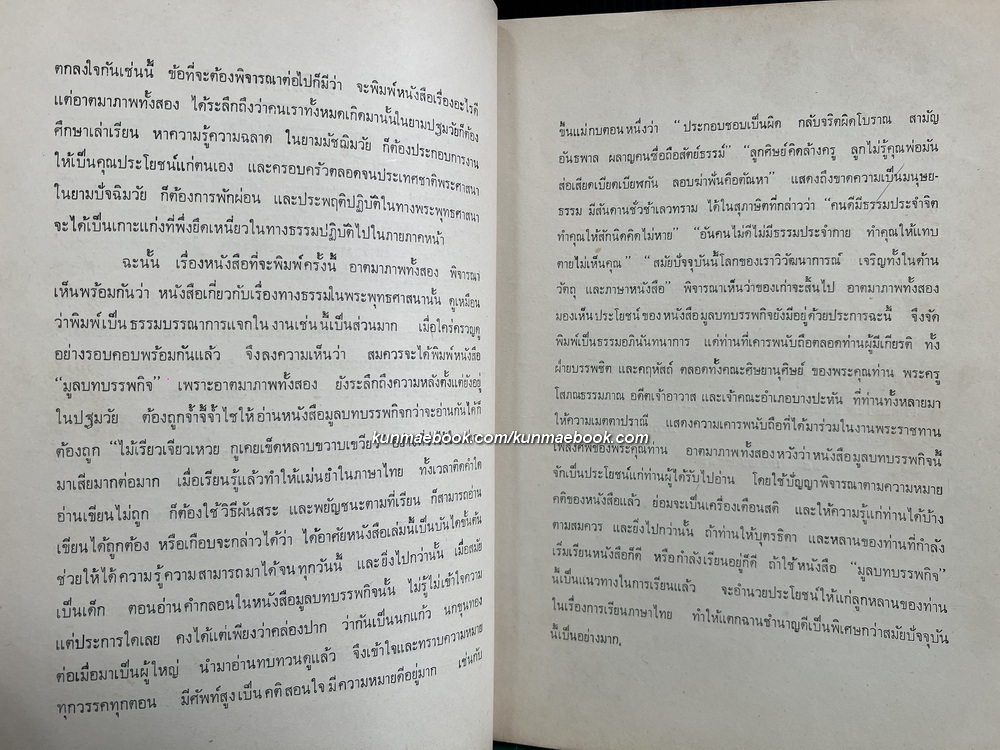 ตกลงใจกันเช่นนี้ ข้อที่จะต้องพิจารณาต่อไปก็มีว่า จะพิมพ์หนังสือเรื่องอะไรดี
แต่อาตมาภาพทั้งสอง ได้ระลึกถึงว่าคนเราทั้งหมดเกิดมานั้นในยามปฐมวัยก็ต้อง
ศึกษาเล่าเรียน หาความรู้ความฉลาด ในยามมัชฌิมวัย ก็ต้องประกอบการงาน
ให้เป็นคุณประโยชน์แก่ตนเอง และครอบครัวตลอดจนประเทศชาติพระศาสนา
ในยามปัจฉิมวัย ก็ต้องการพักผ่อน และประพฤติปฏิบัติในทางพระพุทธศาสนา
จะได้เป็นเกาะแก่งที่พึ่งยึดเหนี่ยวในทางธรรมปฏิบัติไปในภายภาคหน้า
ฉะนั้น เรื่องหนังสือที่จะพิมพ์ครั้งนี้ อาตมาภาพทั้งสอง พิจารณา
เห็นพร้อมกันว่า หนังสือเกี่ยวกับเรื่องทางธรรมในพระพุทธศาสนานั้น ดูเหมือน
ว่าพิมพ์เป็นธรรมบรรณาการแจกในงานเช่นนี้เป็นส่วนมาก เมื่อใคร่ครวญดู
อย่างรอบคอบพร้อมกันแล้ว จึงลงความเห็นว่า สมควรจะได้พิมพ์หนังสือ
“มูลบทบรรพกิจ” เพราะอาตมาภาพทั้งสอง ยังระลึกถึงความหลังตั้งแต่ยังอยู่
ในปฐมวัย ต้องถูกจ้ำจี้จ้ำไชให้อ่านหนังสือมูลบทบรรพกิจกว่าจะอ่านกันได้ก็
ต้องถูก “ไม้เรียวเจียวเหวย กูเคยเข็ดหลาบขวาบเขวียว
kunmaebook.com/kunmaebook.com
มาเสียมากต่อมาก เมื่อเรียนรู้แล้วทำให้แม่นยำในภาษาไทย ทั้งเวลาติดคำใด
อ่านเขียนไม่ถูก ก็ต้องใช้วิธีผันสระ และพยัญชนะตามที่เรียน ก็สามารถอ่าน
เขียนได้ถูกต้อง หรือเกือบจะกล่าวได้ว่า ได้อาศัยหนังสือเล่มนี้เป็นบันไดขั้นต้น
ช่วยให้ได้ความรู้ความสามารถมาได้จนทุกวันนี้ และยิ่งไปกว่านั้น เมื่อสมัย
เป็นเด็ก ตอนอ่านคำกลอนในหนังสือมูลบทบรรพกิจนั้น ไม่รู้ไม่เข้าใจความ
แต่ประการใดเลย คงได้แต่เพียงว่าคล่องปาก ว่ากันเป็นนกแก้ว นกขุนทอง
ต่อเมื่อมาเป็นผู้ใหญ่ นำมาอ่านทบทวนดูแล้ว จึงเข้าใจและทราบความหมาย
ทุกวรรคทุกตอน มีศัพท์สูงเป็นคติสอนใจ มีความหมายดีอยู่มาก เช่นกับ
ขึ้นแม่กบตอนหนึ่งว่า “ประกอบชอบเป็นผิด กลับจริตผิดโบราณ สามัญ
อันธพาล ผลาญคนซื่อถือสัตย์ธรรม์” “ลูกศิษย์คิดล้างครู ลูกไม่รู้คุณพ่อมัน
ส่อเสียดเบียดเบียฬกัน ลอบฆ่าฟันคือตัณหา” แสดงถึงขาดความเป็นมนุษย-
ธรรม มีสันดานชั่วช้าเลวทราม ได้ในสุภาษิตที่กล่าวว่า “คนดีมีธรรมประจำจิต
ทำคุณให้สักนิดคิดไม่หาย” “อันคนไม่ดีไม่มีธรรมประจำกาย ทำคุณให้แทบ
ตายไม่เห็นคุณ” “สมัยปัจจุบันนี้โลกของเราวิวัฒนาการณ์ เจริญทั้งในด้าน
วัตถุ และภาษาหนังสือ” พิจารณาเห็นว่าของเก่าจะสิ้นไป อาตมาภาพทั้งสอง
มองเห็นประโยชน์ของหนังสือมูลบทบรรพกิจยังมีอยู่ด้วยประการฉะนี้ จึงจัด
พิมพ์เป็นธรรมอภินันทนาการ แด่ท่านที่เคารพนับถือตลอดท่านผู้มีเกียรติ ทั้ง
ฝ่ายบรรพชิต และคฤหัสถ์ ตลอดทั้งคณะศิษยานุศิษย์ ของพระคุณท่าน พระครู
โสภณธรรมภาณ อดีตเจ้าอาวาส และเจ้าคณะอำเภอบางปะหัน ที่ท่านทั้งหลายมา
ให้ความเมตตาปราณี แสดงความเคารพนับถือที่ได้มาร่วมในงานพระราชทาน
เพลิงศพของพระคุณท่าน อาตมาภาพทั้งสองหวังว่าหนังสือมูลบทบรรพกิจนี้
จักเป็นประโยชน์แก่ท่านผู้ได้รับไปอ่าน โดยใช้ปัญญาพิจารณาตามความหมาย
คติของหนังสือแล้ว ย่อมจะเป็นเครื่องเตือนสติ และให้ความรู้แก่ท่านได้บ้าง
ตามสมควร และยิ่งไปกว่านั้น ถ้าท่านให้บุตรธิดา และหลานของท่านที่กำลัง
เริ่มเรียนหนังสือก็ดี หรือกำลังเรียนอยู่ก็ดี ถ้าใช้หนังสือ “มูลบทบรรพกิจ”
นี้เป็นแนวทางในการเรียนแล้ว จะอำนวยประโยชน์ให้แก่ลูกหลานของท่าน
ในเรื่องการเรียนภาษาไทย ทำให้แตกฉานชำนาญดีเป็นพิเศษกว่าสมัยปัจจุบัน
นี้เป็นอย่างมาก.